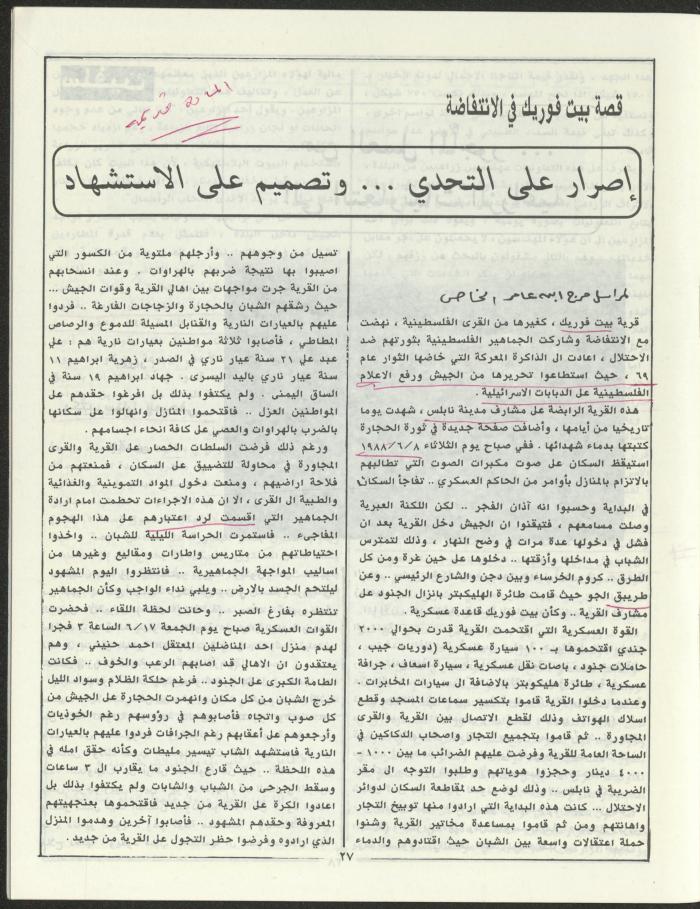 المادة قديمة
قصة بيت فوريك في الانتفاضة
إصرار على التحدي ... وتصميم على الاستشهاد
لمراسل مرج ابن عامر الخاص
قرية بيت فوريك ، كغيرها من القرى الفلسطينية ، نهضت
مع الانتفاضة وشاركت الجماهير الفلسطينية بثورتهم ضد
الاحتلال ، اعادت الى الذاكرة المعركة التي خاضها الثوار عام
٦٩ ، حيث استطاعوا تحريرها من الجيش ورفع الاعلام
الفلسطينية عل الدبابات الاسرائيلية .
هذه القرية الرابضة عل مشارف مدينة نابلس ، شهدت يوما
تاريخيا من أيامها ، وأضافت صفحة جديدة في ثورة الحجارة
كتبتها بدماء شهدائها . ففي صباح يوم الثلاثاء ١٩٨٨/٦/٨
استيقظ السكان عل صوت مكبرات الصوت التي تطالبهم
بالالتزام بالمنازل بأوامر من الحاكم العسكري .. تفاجأ السكان
في البداية وحسبوا انه آذان الفجر .. لكن اللكنة العبرية
وصلت مسامعهم ، فتيقنوا ان الجيش دخل القرية بعد ان
فشل في دخولها عدة مرات في وضح النهار ، وذلك لتمترس
الشباب في مداخلها وأزقتها .. دخلوها عل حين غرة ومن كل
الطرق .. كروم الخرساء وبين دجن والشارع الرئيسي .. وعن
طريق الجو حيث قامت طائرة الهليكبتر بانزال الجنود عل
مشارف القرية .. وكأن بيت فوريك قاعدة عسكرية .
القوة العسكرية التي اقتحمت القرية قدرت بحوالي ٢٠٠٠
جندي اقتحموها بـ ١٠٠ سيارة عسكرية (دوريات جيب ،
حاملات جنود ، باصات نقل عسكرية ، سيارة اسعاف ، جرافة
عسكرية ، طائرة هليكوبتر بالاضافة ال سيارات المخابرات .
وعندما دخلوا القرية قاموا بتكسير سماعات المسجد وقطع
اسلاك الهواتف وذلك لقطع الاتصال بين القرية والقرى
المجاورة .. ثم قاموا بتجميع التجار واصحاب الدكاكين في
الساحة العامة للقرية وفرضت عليهم الضرائب ما بين ١٠٠٠ -
٤٠٠٠ دينار وحجزوا هوياتهم وطلبوا التوجه ال مقر
الضريبة في نابلس .. وذلك لوضع حد مقاطعة السكان لدوائر
الاحتلال ... كانت هذه البداية التي ارادوا منها توبيخ التجار
واهانتهم ومن ثم قاموا بمساعدة مخاتير القرية وشنوا
حملة اعتقالات واسعة بين الشبان حيث اقتادوهم والدماء
تسيل من وجوههم .. وأرجلهم ملتوية من الكسور التي
اصيبوا بها نتيجة ضربهم بالهراوات . وعند انسحابهم
من القرية جرت مواجهات بين اهالي القرية وقوات الجيش ...
حيث رشقهم الشبان بالحجارة والزجاجات الفارغة .. فردوا
عليهم بالعيارات النارية والقنابل المسيلة للدموع والرصاص
المطاطي ، فأصابوا ثلاثة مواطنين بعيارات نارية هم : علي
عبد علي ٢١ سنة عيار ناري في الصدر ، زهرية ابراهيم ١١
سنة عيار ناري باليد اليسرى . جهاد ابراهيم ١٩ سنة في
الساق اليمنى . ولم يكتفوا بذلك بل افرغوا حقدهم عل
المواطنين العزل .. فاقتحموا المنازل وانهالوا عل سكانها
بالضرب بالهراوات والعصي عل كافة انحاء اجسامهم .
ورغم ذلك فرضت السلطات الحصار عل القرية والقرى
المجاورة في محاولة للتضييق عل السكان ، فمنعتهم من
فلاحة اراضيهم ، ومنعت دخول المواد التموينية والغذائية
والطبية ال القرى ، الا ان هذه الاجراءات تحطمت امام ارادة
الجماهير التي اقسمت لرد اعتبارهم عل هذا الهجوم
المفاجىء .. فاستمرت الحراسة الليلية للشبان .. واخذوا
احتياطاتهم من متاريس واطارات ومقاليع وغيرها من
اساليب المواجهة الجماهيرية .. فانتظروا اليوم المشهود
ليلتحم الجسد بالارض .. ويلبي نداء الواجب وكأن الجماهير
تنتظره بفارغ الصبر .. وحانت لحظة اللقاء .. فحضرت
القوات العسكرية صباح يوم الجمعة ٦/١٧ الساعة ٣ فجرا
لهدم منزل احد المناضلين المعتقل احمد حنيني ، وهم
يعتقدون ان الاهالي قد اصابهم الرعب والخوف .. فكانت
الطامة الكبرى عل الجنود .. فرغم حلكة الظلام وسواد الليل
خرج الشبان من كل مكان وانهمرت الحجارة عل الجيش من
كل صوب واتجاه فأصابوهم في رؤوسهم رغم الخوذيات
وأرجعوهم عل أعقابهم رغم الجرافات فردوا عليهم بالعيارات
النارية فاستشهد الشاب تيسير مليطات وكأنه حقق امله في
هذه اللحظة .. حيث قارع الجنود ما يقارب ال ٣ ساعات
وسقط الجرحى من الشباب والشابات ولم يكتفوا بذلك بل
اعادوا الكرة عل القرية من جديد فاقتحموها بعنجهيتهم
المعروفة وحقدهم المشهود .. فأصابوا آخرين وهدموا المنزل
الذي ارادوه وفرضوا حظر التجول عل القرية من جديد .
٢٧